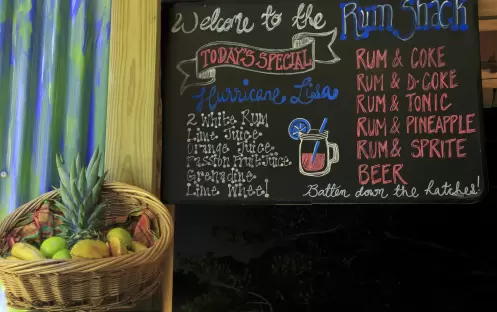 Welcome to the Rum Shack
TODAY'S SPECIAL
Hurricane Lisa
2 White Rum
Lime Juice
Orange Juice
Passion Fruit Juice
Grenadine
Lime Wheel
RUM & COKE
RUM & D-COKE
RUM & TONIC
RUM & PINEAPPLE
RUM & SPRITE
BEER
Batten down the hatches!